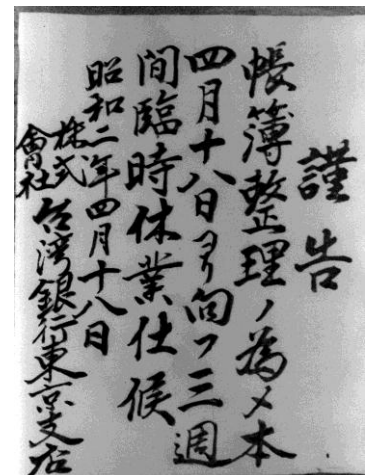 謹告
帳簿整理ノ為メ本
四月十八日ヨリ向フ三週
間臨時休業仕候
昭和二年四月十八日
株式會社台湾銀行東京支店